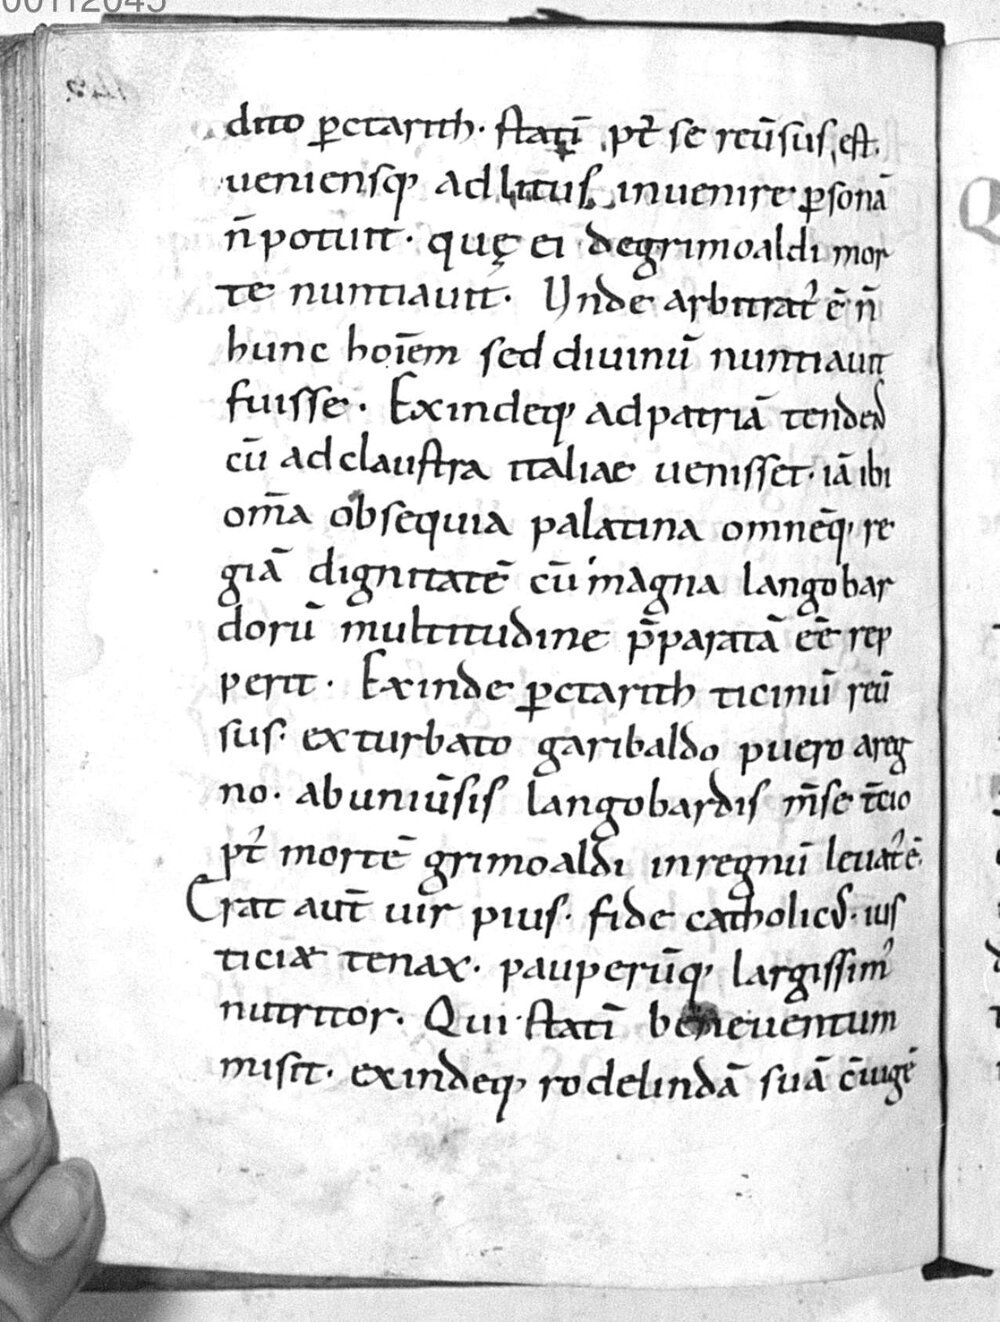 00112045
dito ꝑctarith· statī pt̄ se reū̄sus est.
ueniensq; ad litus inuenire ꝑsonā
n̄ potuit· quę ei de grimoaldi mor
te nuntiauit· Unde arbitrat᾽ ē n̄
hunc hoīem sed diuinū nuntiauit
fuisse· Exindeq; ad patriā tendens
cū ad claustra italiae uenisset· iā ibi
om̄a obsequia palatina omnēq; re
giā dignitatē cū magna langobar
dorū multitudine p̄paratā eē rep
perit· Exinde ꝑctarith ticinū reū
sus· exturbato garibaldo puero a reg
no· ab uniū̄sis langobardis m̄se t̄cio
pt᾽ mortē grimoaldi in regnū leuat᾽ ē·
Erat aut̄ uir pius· fide catholicus· ius
ticiæ tenax· pauperūq; largissim᾽
nutritor· Qui statī beneuentum
misit· exindeq; rodelindā suā c̄iugē